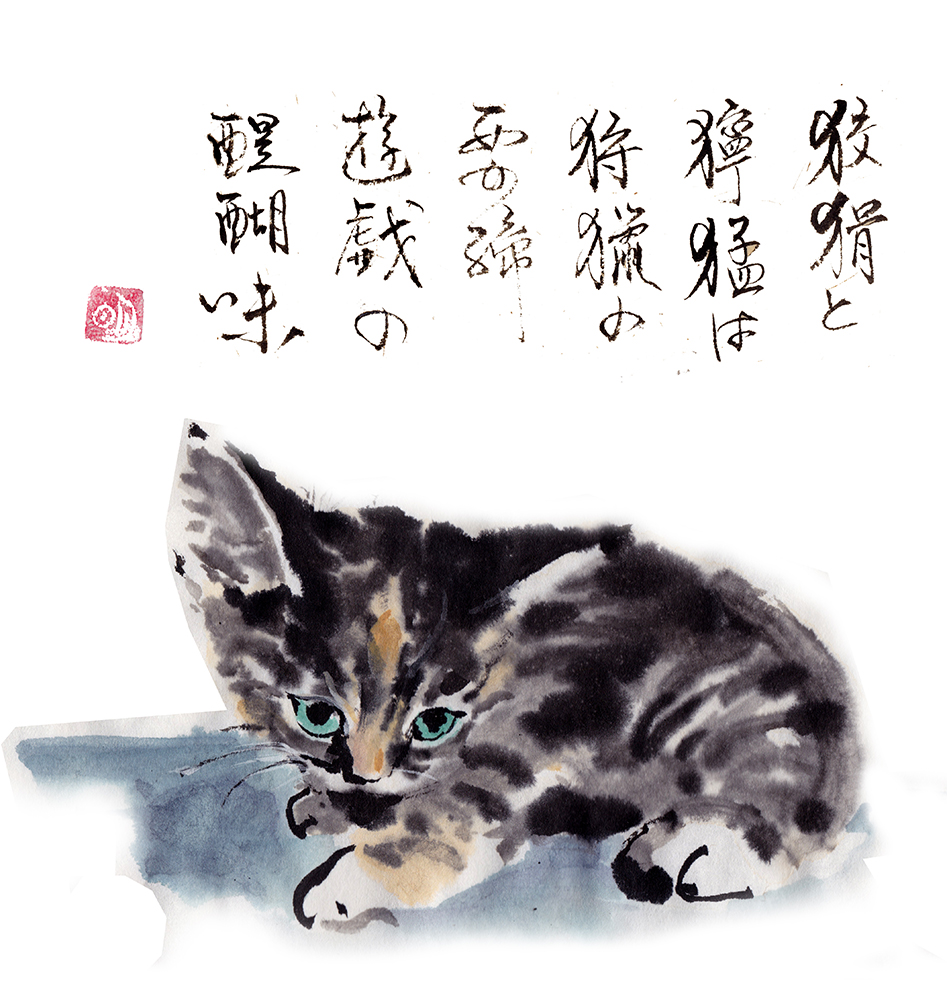 狡猾と
獰猛は
狩獵の
要の締
遊戯の
醍醐味